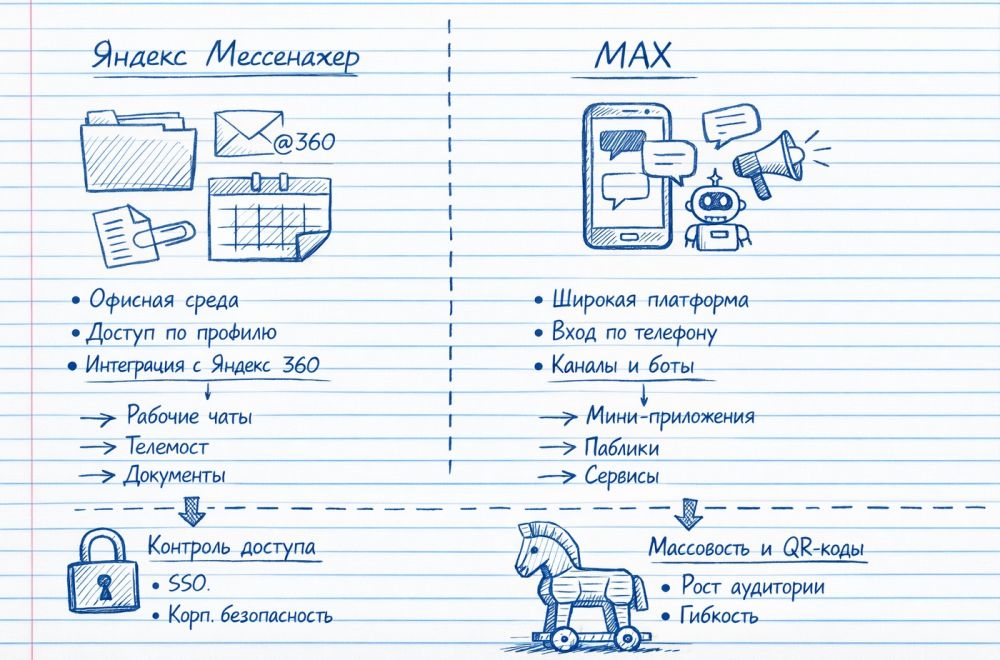 Яндекс Мессенахер
@360
• Офисная среда
• Доступ по профилю
• Интеграция с Яндекс 360
→ Рабочие чаты
→ Телемост
→ Документы
Контроль доступа
• SSO.
• Корп. безопасность
MAX
• Широкая платформа
• Вход по телефону
• Каналы и боты
→ Мини-приложения
→ Паблики
→ Сервисы
Массовость и QR-коды
• Рост аудитории
• Гибкость